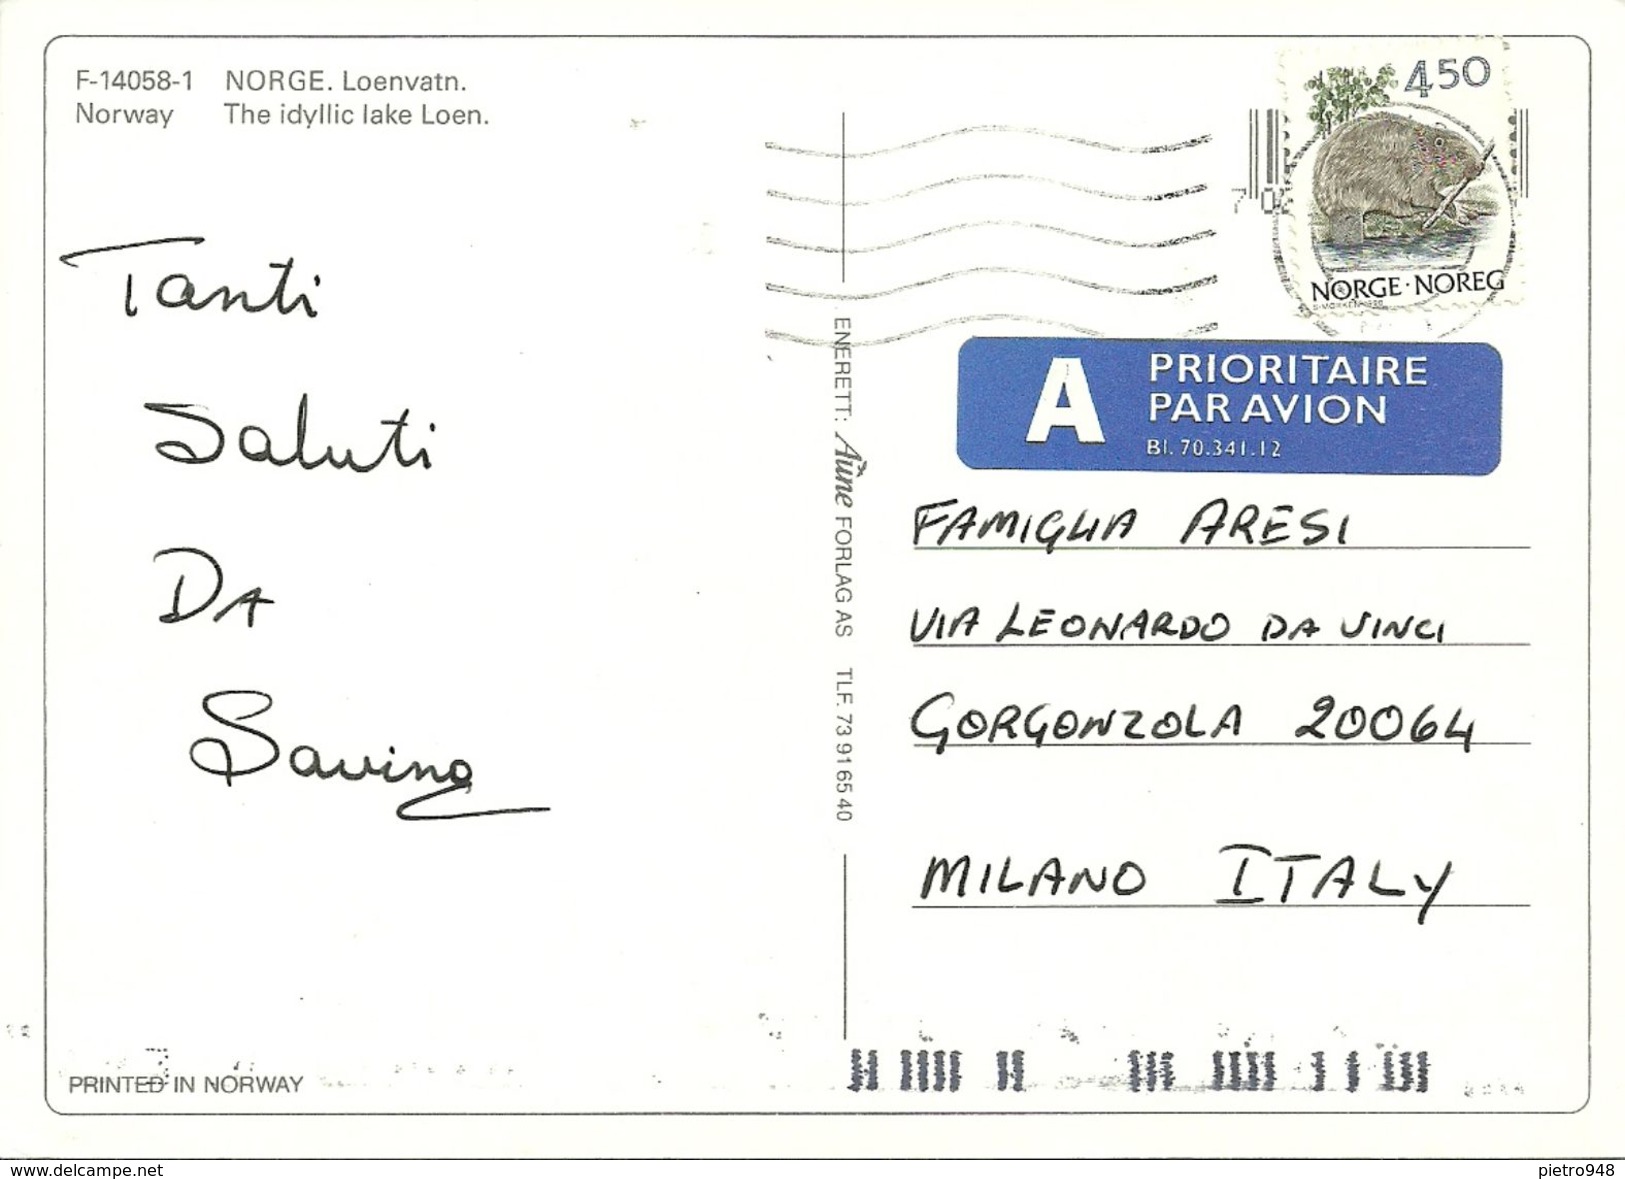 F-14058-1 NORGE. Loenvatn.
Norway The idyllic lake Loen.
450
NORGE · NOREG
A PRIORITAIRE
PAR AVION
Bl. 70.341.12
Tanti
Saluti
DA
Savino
ENERETT: Aune FORLAG AS TLF. 73 91 65 40
FAMIGLIA ARESI
VIA LEONARDO DA VINCI
GORGONZOLA 20064
MILANO ITALY
PRINTED IN NORWAY
www.delcampe.net
pietro948